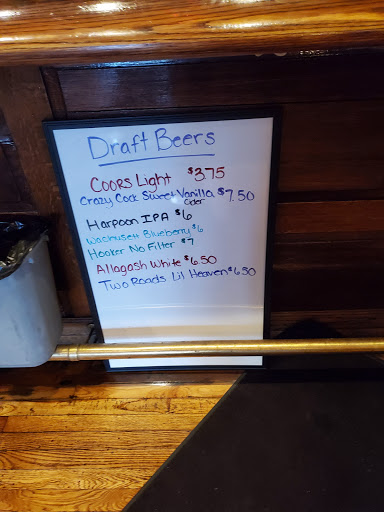 Draft Beers
Coors Light $3.75
Crazy Cock Sweet Vanilla $7.50
Cider
Harpoon IPA $6
Wachusett Blueberry $6
Hooker No Filter $7
Allagash White $6.50
Two Roads Lil Heaven $6.50